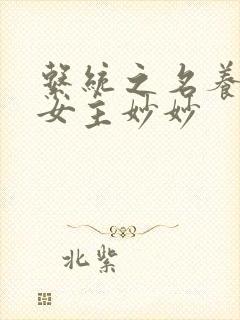 繫統之名養
女主妙妙
北紫